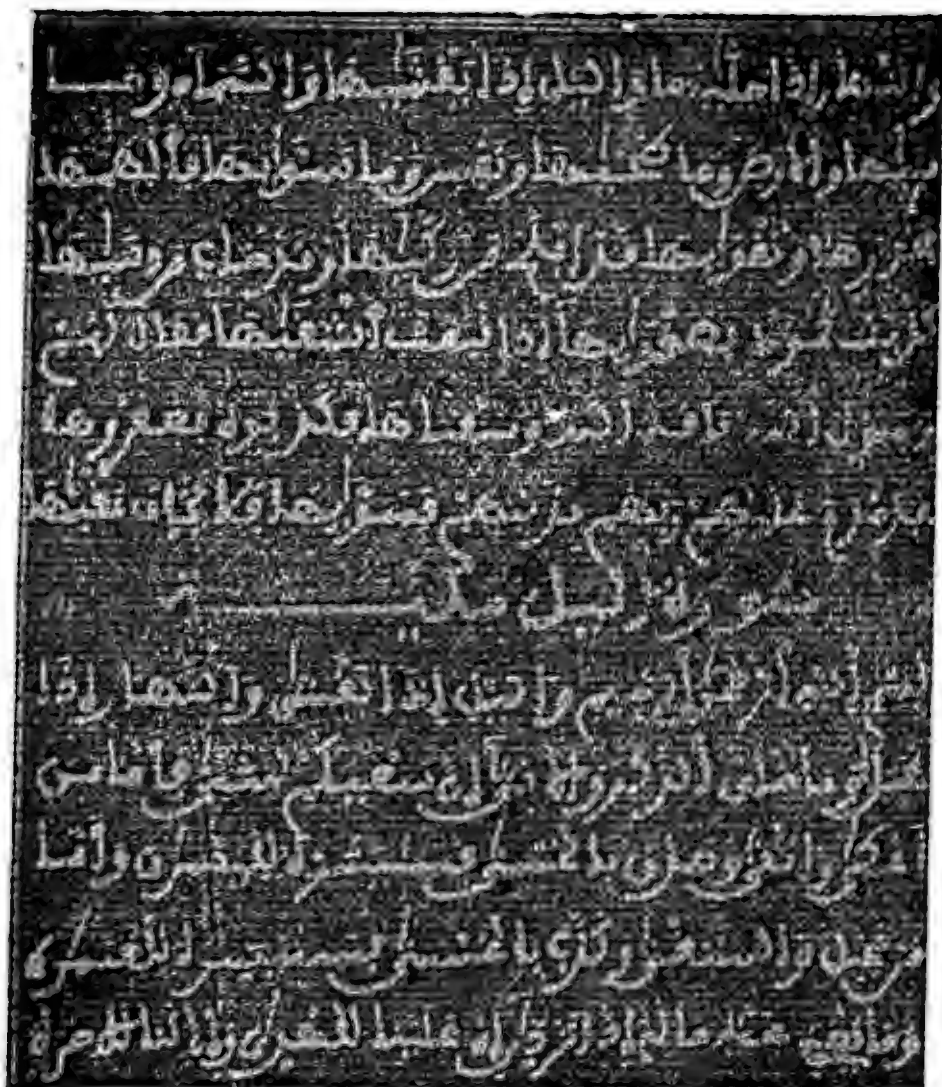 والنهار إذا جليها واليل إذا يغشيها والسماء وما
بنيها والأرض وما طحيها ونفس وما سويها فألهمها
فجورها وتقويها قد افلح من زكيها وقد خاب من دسيها
كذبت ثمود بطغويها إذ انبعث أشقيها فقال لهم
رسول الله ناقة الله وسقياها فكذبوه فعقروها
فدمدم عليهم ربهم بذنبهم فسويها فلا يخاف عقبيها
سورة اليل مكية
بسم الله الرحمن الرحيم واليل إذا يغشى والنهار إذا
تجلى وما خلق الذكر والأنثى إن سعيكم لشتى فأما من
أعطى واتقى وصدق بالحسنى فسنيسره لليسرى وأما
من بخل واستغنى وكذب بالحسنى فسنيسره للعسرى
وما يغني عنه ماله إذا تردى إن علينا للهدى وإن لنا للاخرة